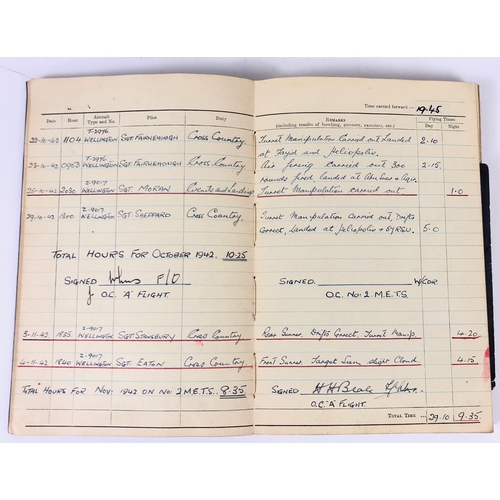 Time carried forward :— 19.45
Date Hour Aircraft Type and No. Pilot Duty Remarks (including results of bombing, gunnery, exercises, etc.) Flying Times Day Night
22-10-42 1104 T-2996 WELLINGTON SGT FAIRNEHOUGH Cross Country. Turret Manipulation Carried out Landed 2.10
at Fayid and Heliopolis.
23-10-42 0955 WELLINGTON SGT FAIRNEHOUGH Cross Country. Air firing carried out 300 2.15
rounds fired landed at
25-10-42 2030 Z-9017 WELLINGTON SGT. MORAN Circuits and Landings Turret Manipulation carried out. 1.0
29-10-42 1300 Z-9017 WELLINGTON SGT. SHEPPARD Cross Country Turret Manipulation Carried out, Drifts 5.0
Correct, Landed at Heliopolis &
TOTAL HOURS FOR OCTOBER 1942. 10.25
SIGNED F/O SIGNED. W/CDR.
O.C. 'A' FLIGHT. O.C. No: 2 M.E.T.S.
3-11-42 1835 Z-9017 WELLINGTON SGT STANSBURY Cross Country Rear Gunner. Drifts Correct, Turret Manip. 4.20
4-11-42 1840 Z-9017 WELLINGTON SGT. EATON Cross Country Front Gunner. Target slight Cloud 4.15
TOTAL HOURS FOR NOV: 1942 ON No: 2 M.E.T.S. 8.35 SIGNED H H Beale
O.C. "A" FLIGHT.
TOTAL TIME ... 29.10 9.35